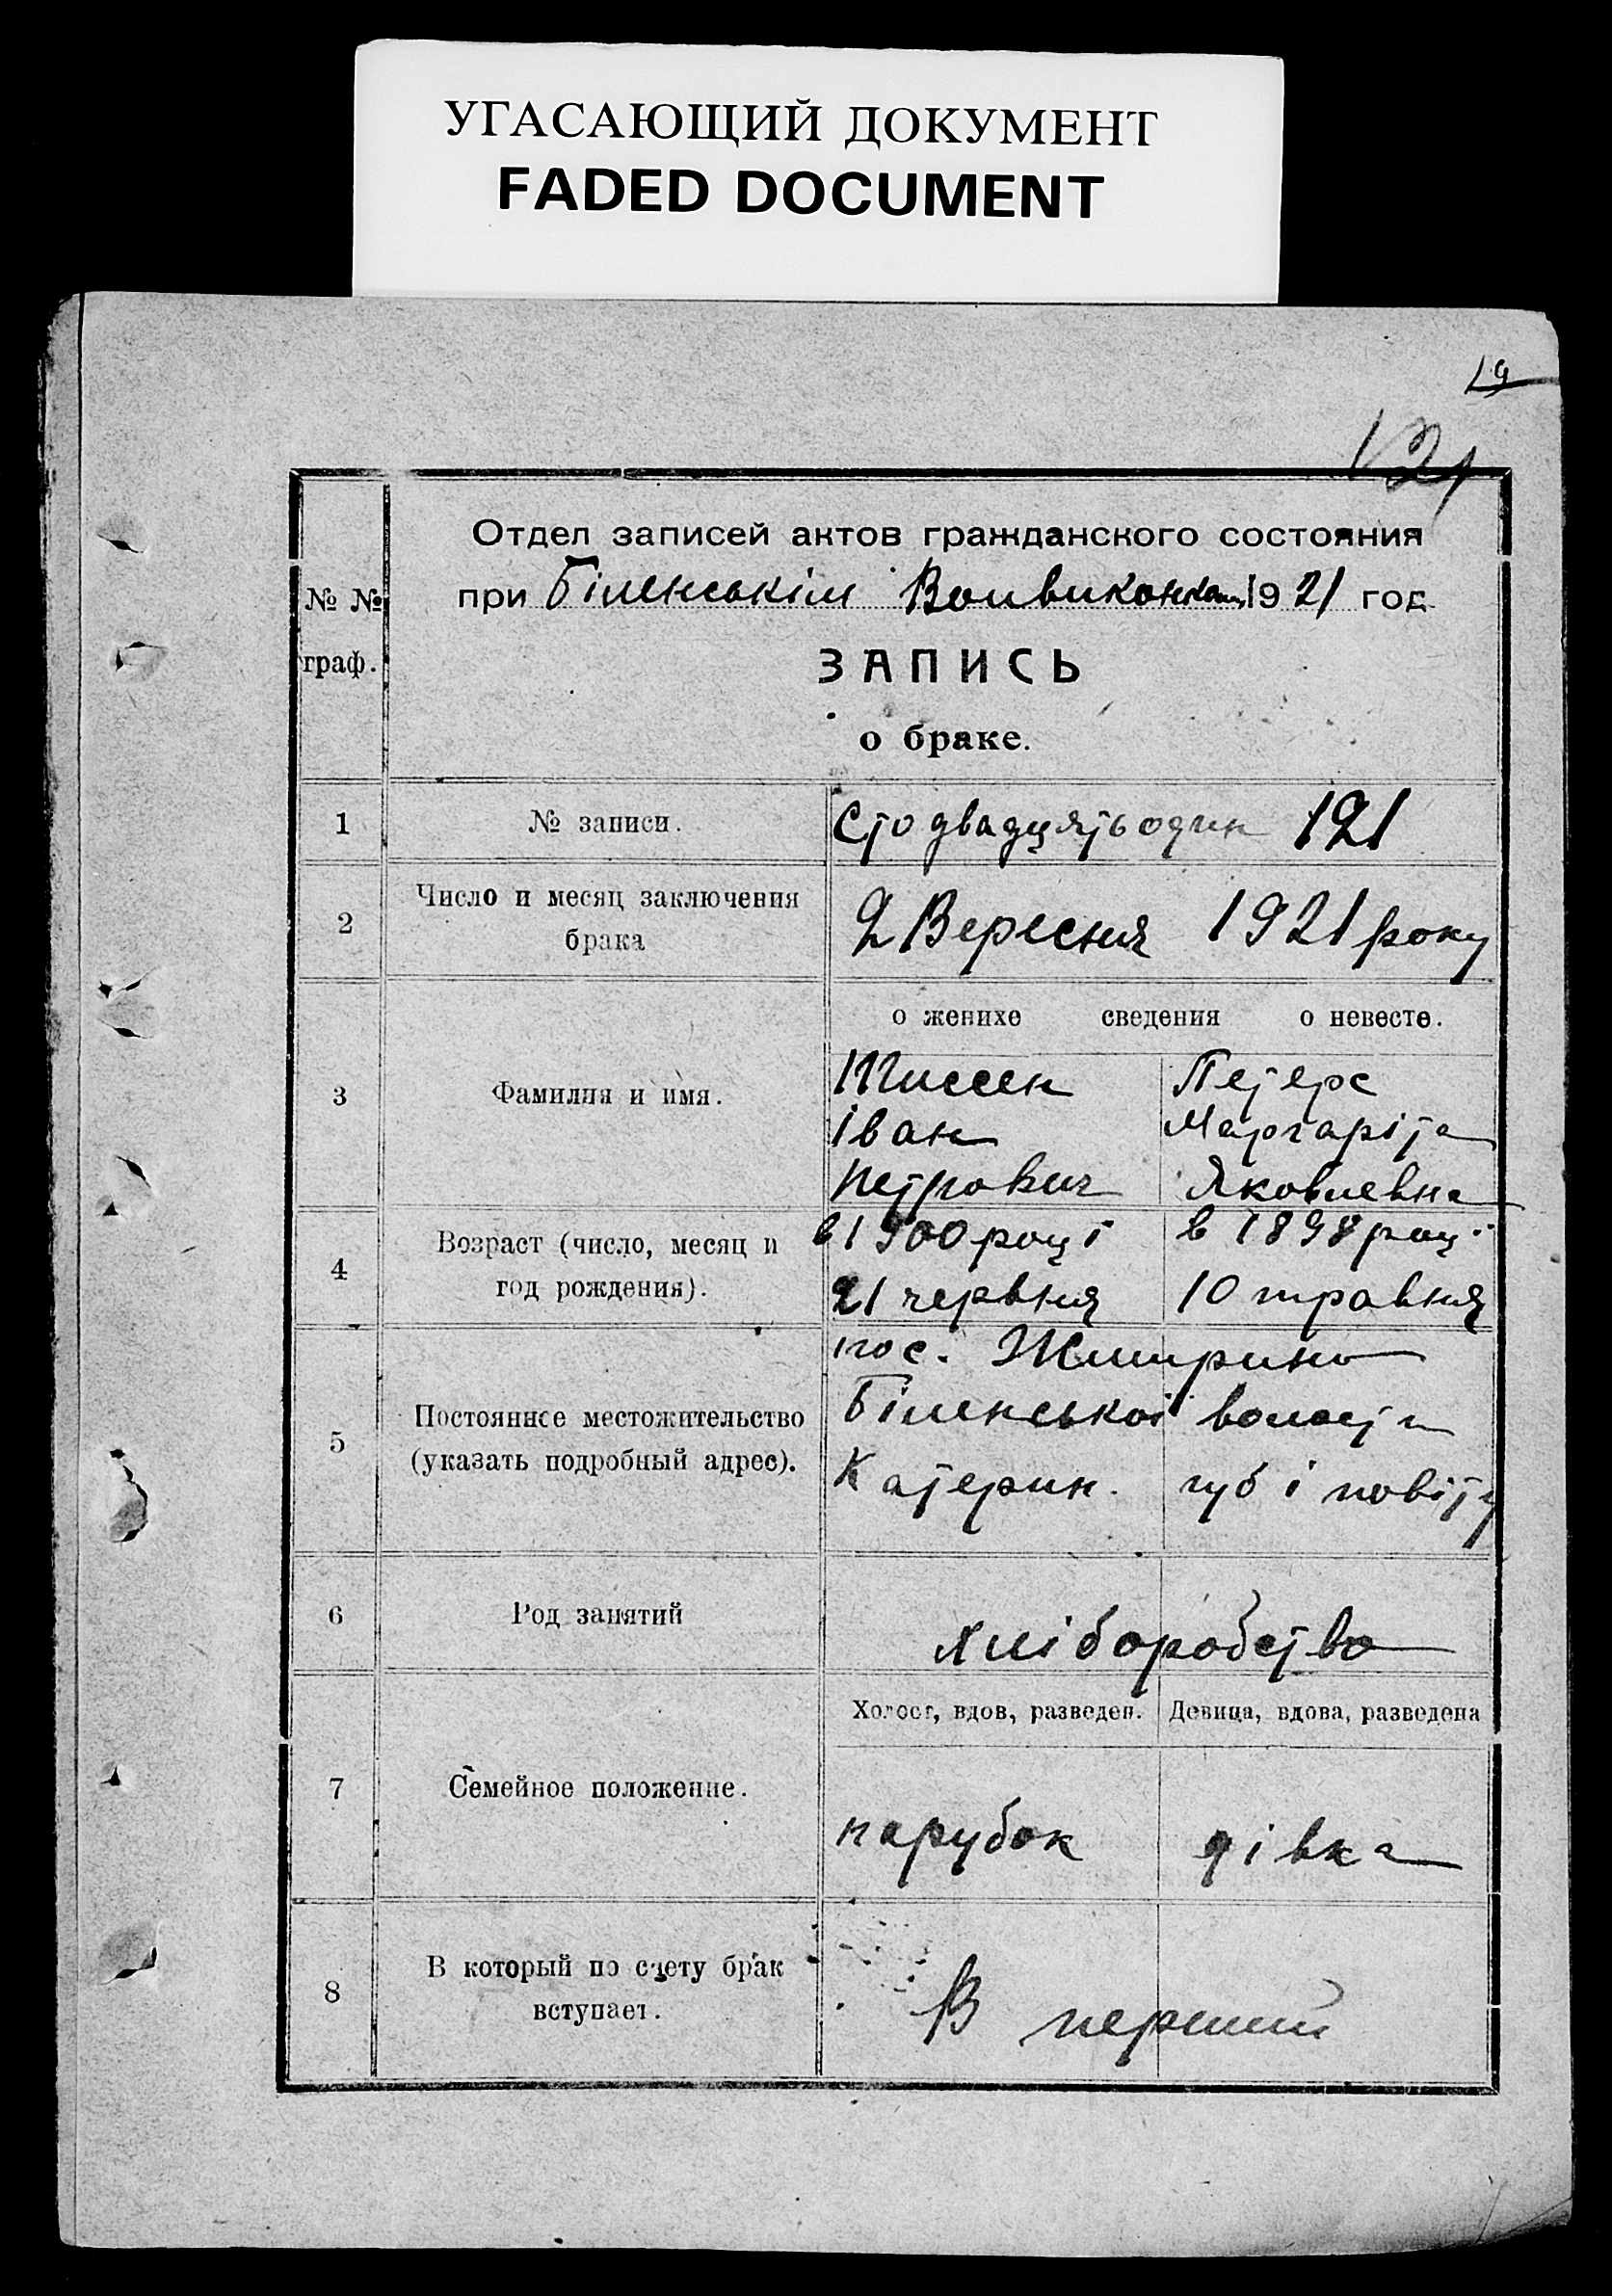 УГАСАЮЩИЙ ДОКУМЕНТ
FADED DOCUMENT
19
121
№ №
граф.
Отдел записей актов гражданского состояния
при Біленськім Волвиконкомі 1921 год.
ЗАПИСЬ
о браке.
1
№ записи.
Сто двадцять один 121
2
Число и месяц заключения
брака
2 Вересня 1921 року
о женихе сведения о невесте.
3
Фамилия и имя.
Тиссен Петерс
Іван Маргаріта
Петрович Яковлевна
4
Возраст (число, месяц и
год рождения).
в 1900 році в 1898 році
21 червня 10 травня
5
Постоянное местожительство
(указать подробный адрес).
пос.
Біленськоі волости
Катерин. губ і повіту
6
Род занятий
хліборобство
Холост, вдов, разведен. Девица, вдова, разведена
7
Семейное положение.
парубок дівка
8
В который по счету брак
вступает.
В перший